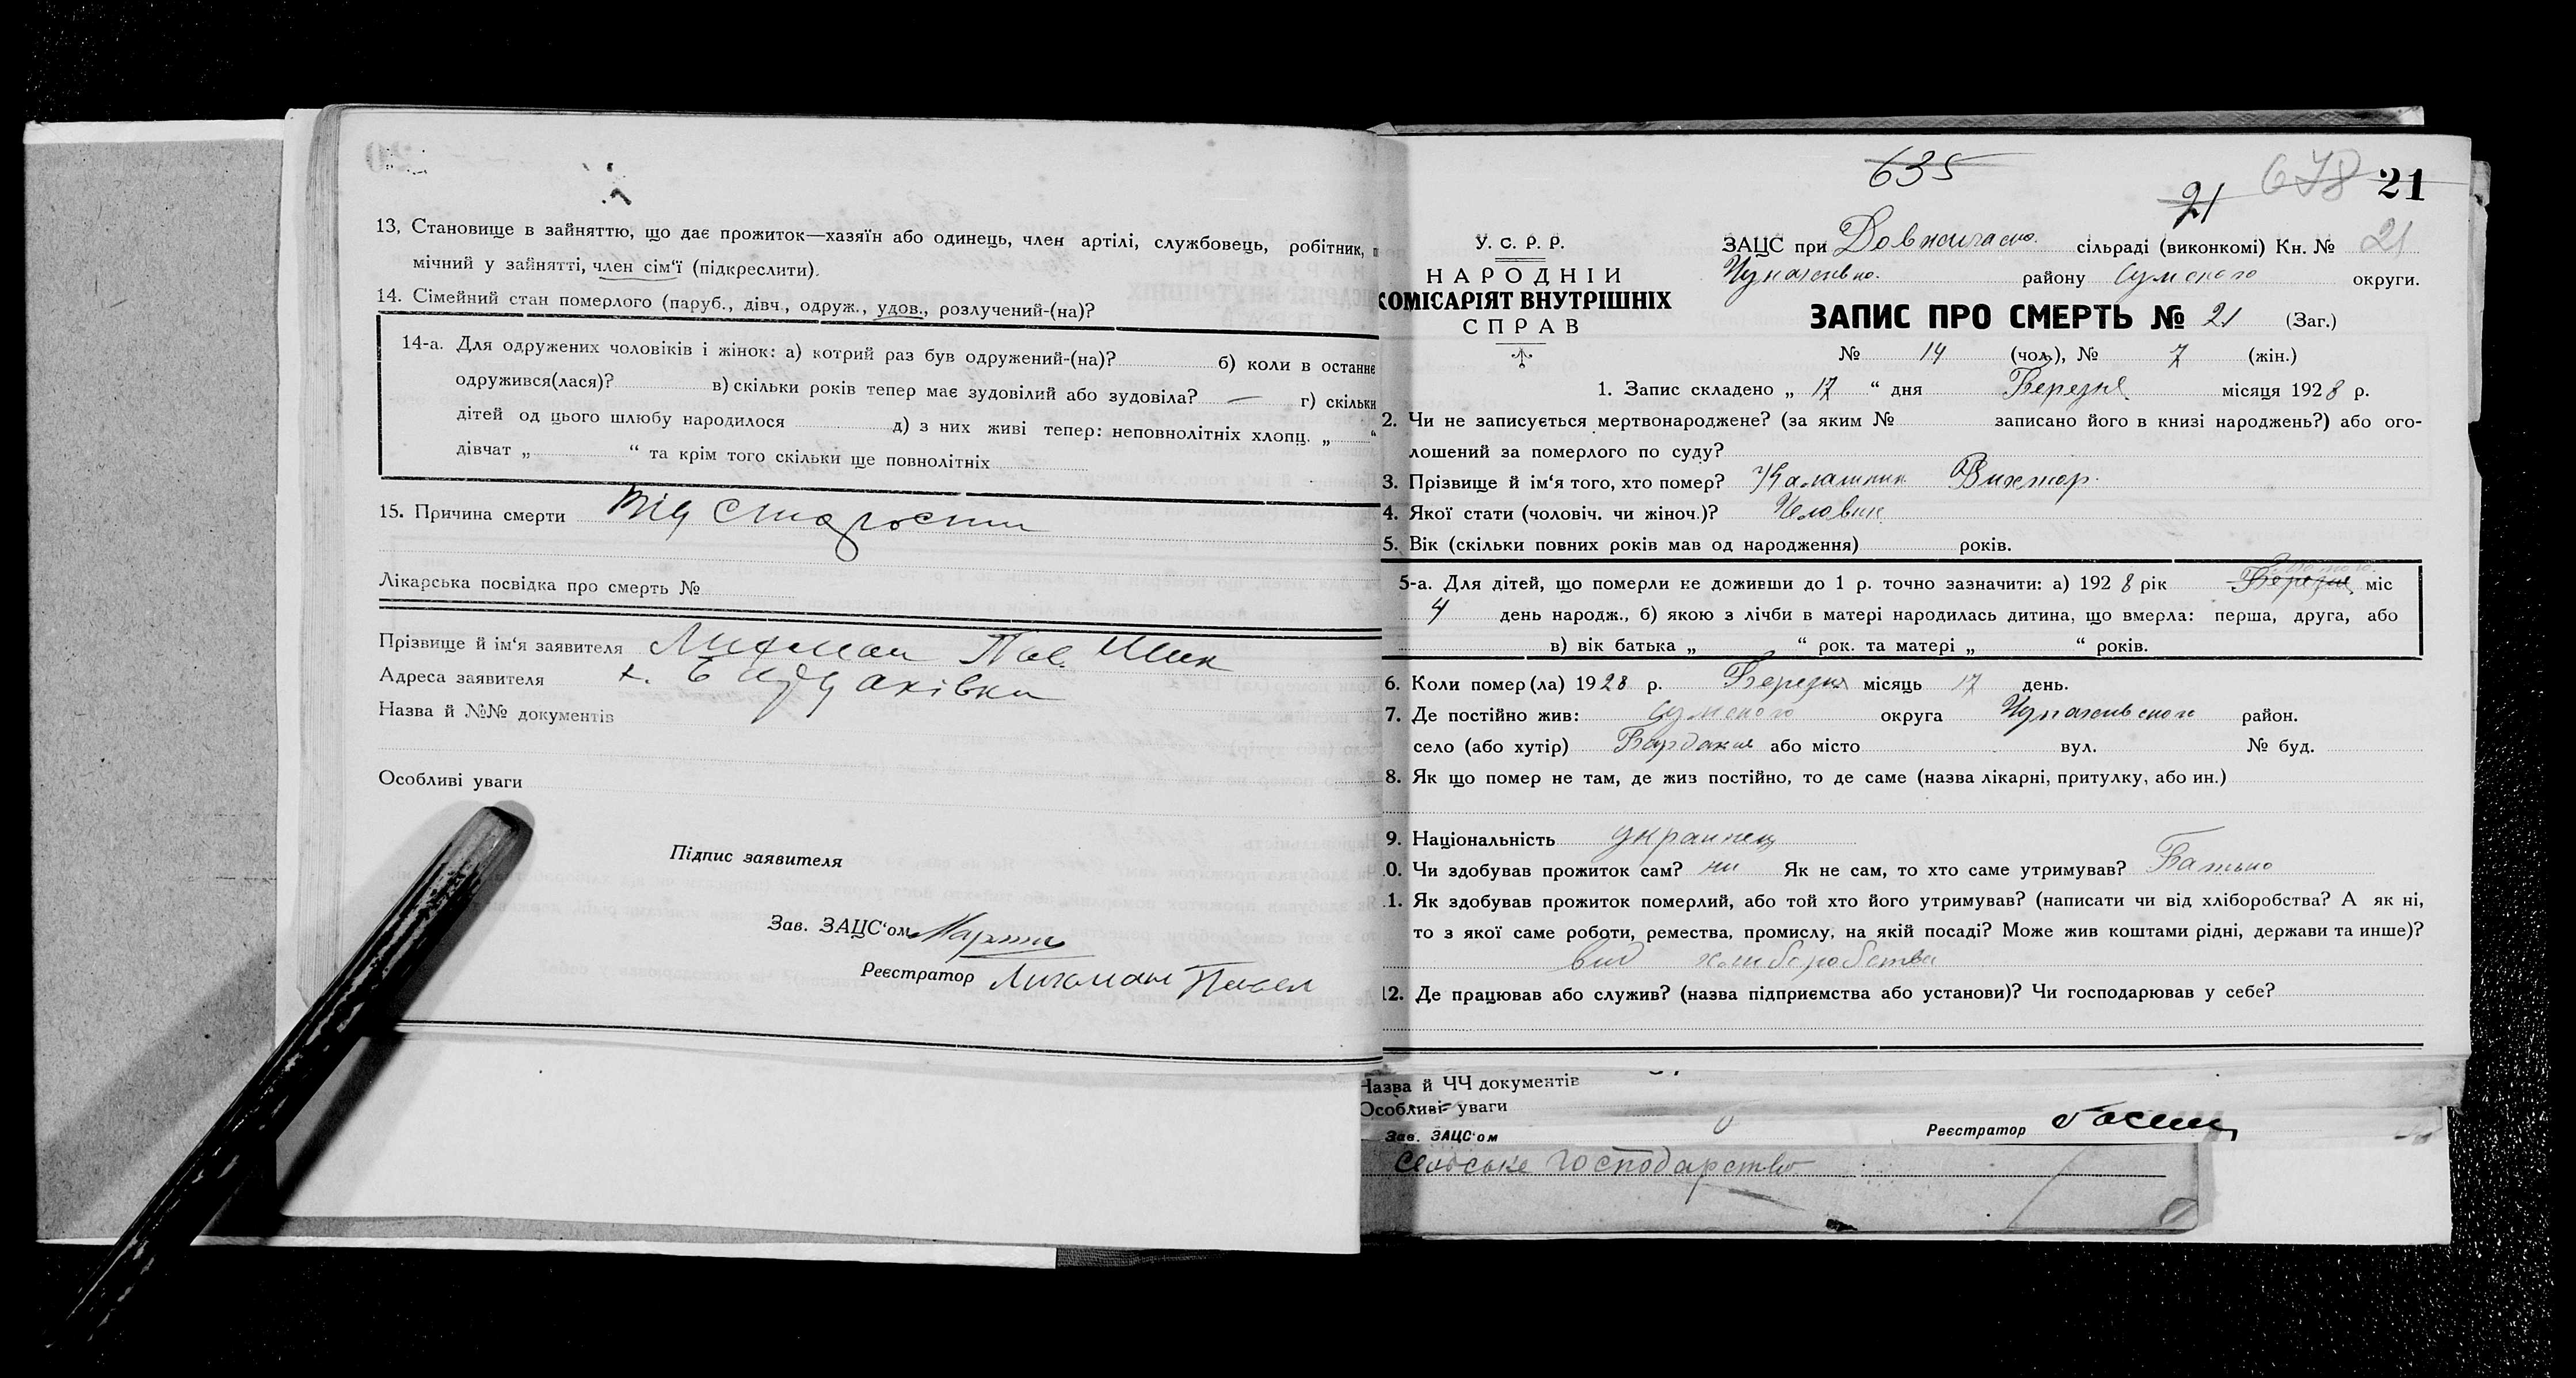 13, Становище в зайняттю, що дає прожиток—хазяїн або одинець, член артілі, службовець, робітник, п
мічний у зайнятті, член сім'ї (підкреслити).
14. Сімейний стан померлого (паруб., дівч., одруж., удов., розлучений-(на)?
14-а. Для одружених чоловіків і жінок: а) котрий раз був одружений-(на)? б) коли в останнє
одружився(лася)? в) скільки років тепер має зудовілий або зудовіла? — г) скільки
дітей од цього шлюбу народилося д) з них живі тепер: неповнолітніх хлопц. „ “
дівчат „ “ та крім того скільки ще повнолітніх
15. Причина смерти Від старости
Лікарська посвідка про смерть №
Прізвище й ім'я заявителя
Адреса заявителя х.
Назва й №№ документів
Особливі уваги
Підпис заявителя
Зав. ЗАЦС'ом
Реєстратор Лихман Павел
635
21 678 21
У. С. Р. Р.
НАРОДНІЙ
КОМІСАРІЯТ ВНУТРІШНІХ
СПРАВ
ЗАЦС при сільраді (виконкомі) Кн. № 21
району Сумского округи.
ЗАПИС ПРО СМЕРТЬ № 21 (Заг.)
№ 14 (чол.), № 7 (жін.)
1. Запис складено „ 17 “ дня Березня місяця 1928 р.
2. Чи не записується мертвонароджене? (за яким № записано його в книзі народжень?) або ого-
лошений за померлого по суду?
3. Прізвище й ім'я того, хто помер? Калашник Виктор
4. Якої стати (чоловіч. чи жіноч.)? Человик
5. Вік (скільки повних років мав од народження) років.
5-а. Для дітей, що померли не доживши до 1 р. точно зазначити: а) 1928 рік Березня міс
4 день народж., б) якою з лічби в матері народилась дитина, що вмерла: перша, друга, або
в) вік батька „ “ рок. та матері „ “ років.
6. Коли помер(ла) 1928 р. Березня місяць 17 день.
7. Де постійно жив: Сумского округа район.
село (або хутір) або місто вул. № буд.
8. Як що помер не там, де жив постійно, то де саме (назва лікарні, притулку, або ин.)
9. Національність украинец
0. Чи здобував прожиток сам? ни Як не сам, то хто саме утримував? Батько
1. Як здобував прожиток померлий, або той хто його утримував? (написати чи від хліборобства? А як ні,
то з якої саме роботи, ремества, промислу, на якій посаді? Може жив коштами рідні, держави та инше)?
вид хлиборобства
12. Де працював або служив? (назва підприємства або установи)? Чи господарював у себе?
Назва й ЧЧ документів
Особливі уваги
Зав. ЗАЦС'ом Реєстратор
сельське господарство